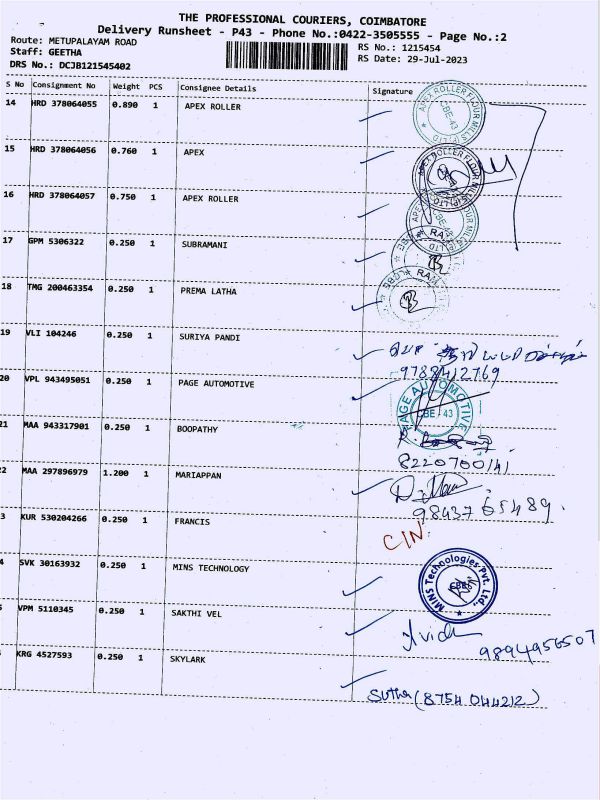 THE PROFESSIONAL COURIERS, COIMBATORE
Delivery Runsheet - P43 - Phone No.:0422-3505555 - Page No.:2
Route: METUPALAYAM ROAD
RS No.: 1215454
Staff: GEETHA
RS Date: 29-Jul-2023
DRS No.: DCJB121545402
S No Consignment No Weight PCS Consignee Details Signature
14 HRD 378064055 0.890 1 APEX ROLLER
APEX ROLLER FLOUR MILLS (P) LTD
CBE-43
15 HRD 378064056 0.760 1 APEX
APEX ROLLER FLOUR MILLS (P) LTD
16 HRD 378064057 0.750 1 APEX ROLLER
CBE-43
17 GPM 5306322 0.250 1 SUBRAMANI
18 TMG 200463354 0.250 1 PREMA LATHA
19 VLI 104246 0.250 1 SURIYA PANDI
9788412769
20 VPL 943495051 0.250 1 PAGE AUTOMOTIVE
PAGE AUTOMOTIVE
CBE-43
21 MAA 943317901 0.250 1 BOOPATHY
8220700141
22 MAA 297896979 1.200 1 MARIAPPAN
98437 65489.
3 KUR 530204266 0.250 1 FRANCIS
C/N
4 SVK 30163932 0.250 1 MINS TECHNOLOGY
MINS Technologies Pvt. Ltd.,
VPM 5110345 0.250 1 SAKTHI VEL
9894956507
KRG 4527593 0.250 1 SKYLARK
Sutha (8754 044212)